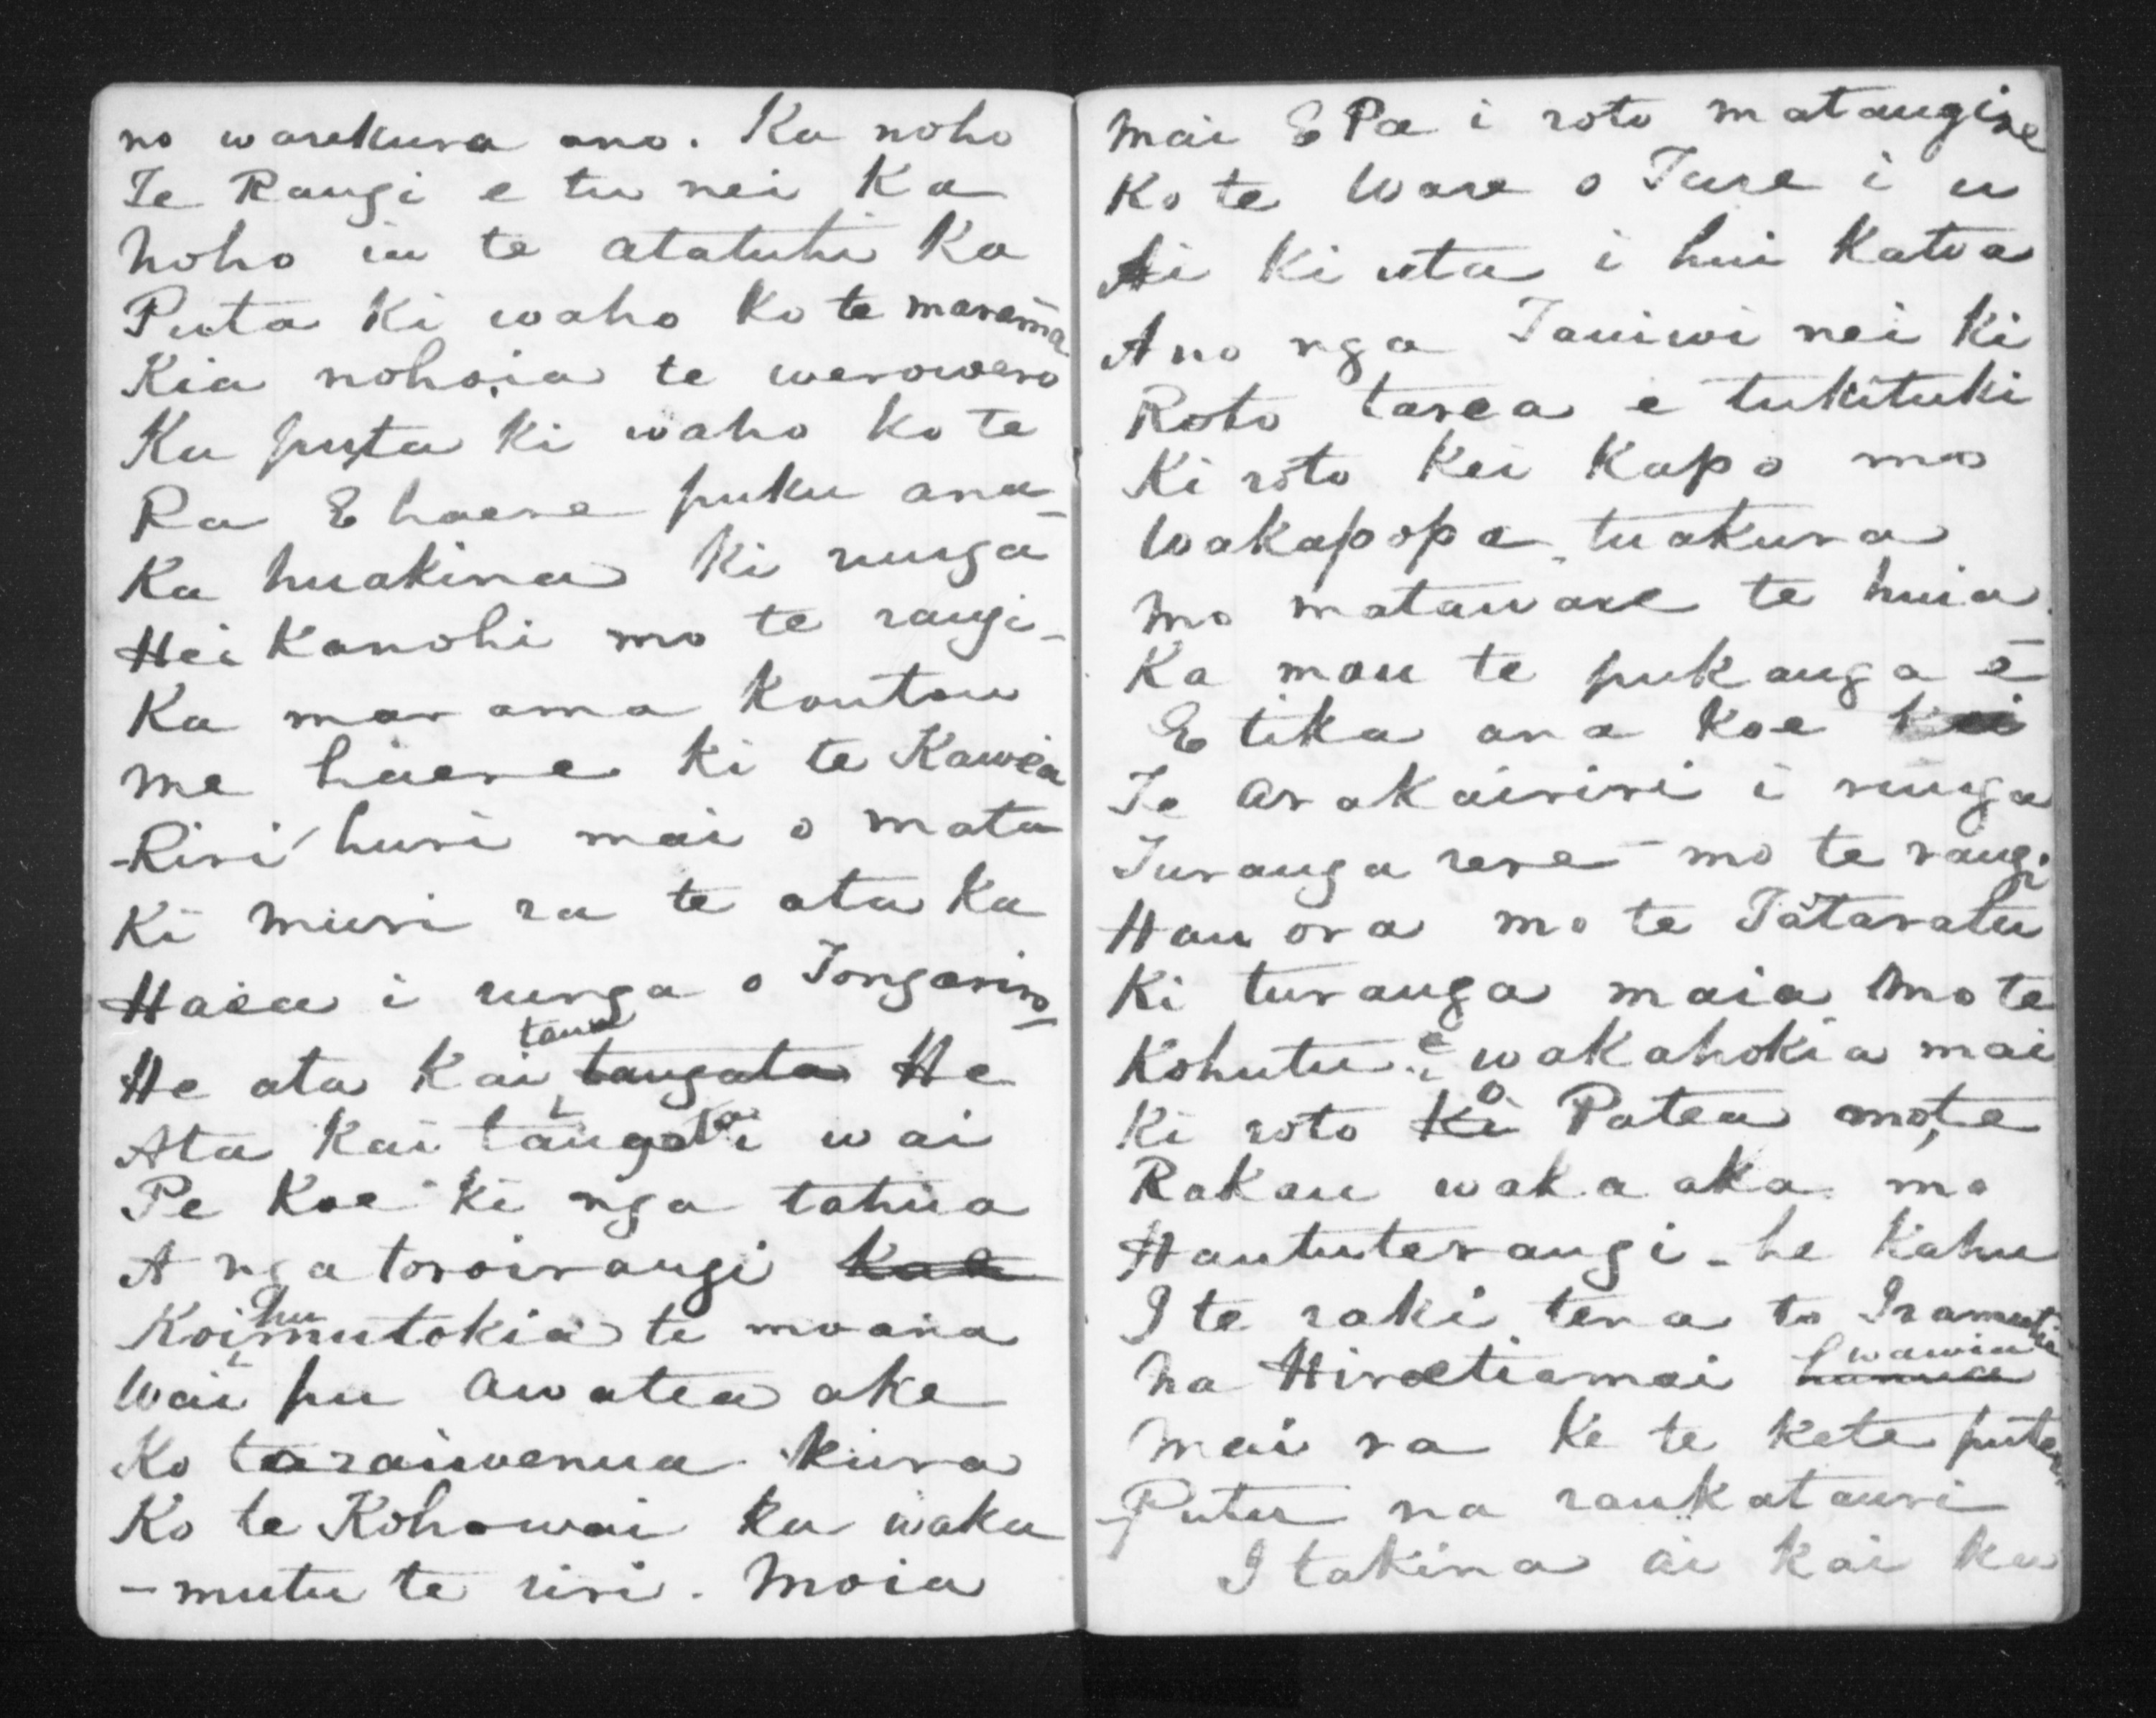 no warekura ano. Ka noho
Te Rangi e tu nei Ka
noho iu te atatuhi Ka
Puta Ki waho ko te marama
Kia nohoia te werowero
Ka puta ki waho ko te
Ra E haere puku ana-
Ka huakina ki runga
Hei Kanohi mo te rangi-
Ka marama Koutou
me haere ki te Kawea
-Riri huri mai o mata
Ki muri ra te ata ka
Haea i runga o Tongariro-
taua
He ata Kai tangata He
Ata Kai tangata i wai
Pe Koe ki nga tahua
A nga toroirangi
hu
Koimutokia te moana
Wai pu awatea ake
Ko taraiwenua kura
Ko te Kohowai ka waka
-mutu te riri. Moia
mai E Pa i roto matangire
Ko te Ware o Ture i u
Ai ki uta i hui katoa
Ano nga Tauiwi nei ki
Roto tarea e tukituki
Ki roto Kei Kapo mo
Wakapopa tuakura
Mo matauare te huia
Ka mau te pukanga e
E tika ana Koe kei
Te arakairiri i runga
Turanga rere mo te rangi
Hau ora mo te Tataratu
Ki turanga maia mo te
Kohutu. e wakahokia mai
Ki roto Ki o Patea mo te
Rakau waka aka mo
Haututerangi - he Kahu
I te raki tena to
wawiatia
na Hiroetiamai
Mai ra Ke te kete putea
-Putu na raukatauri
I takina ai kai ka